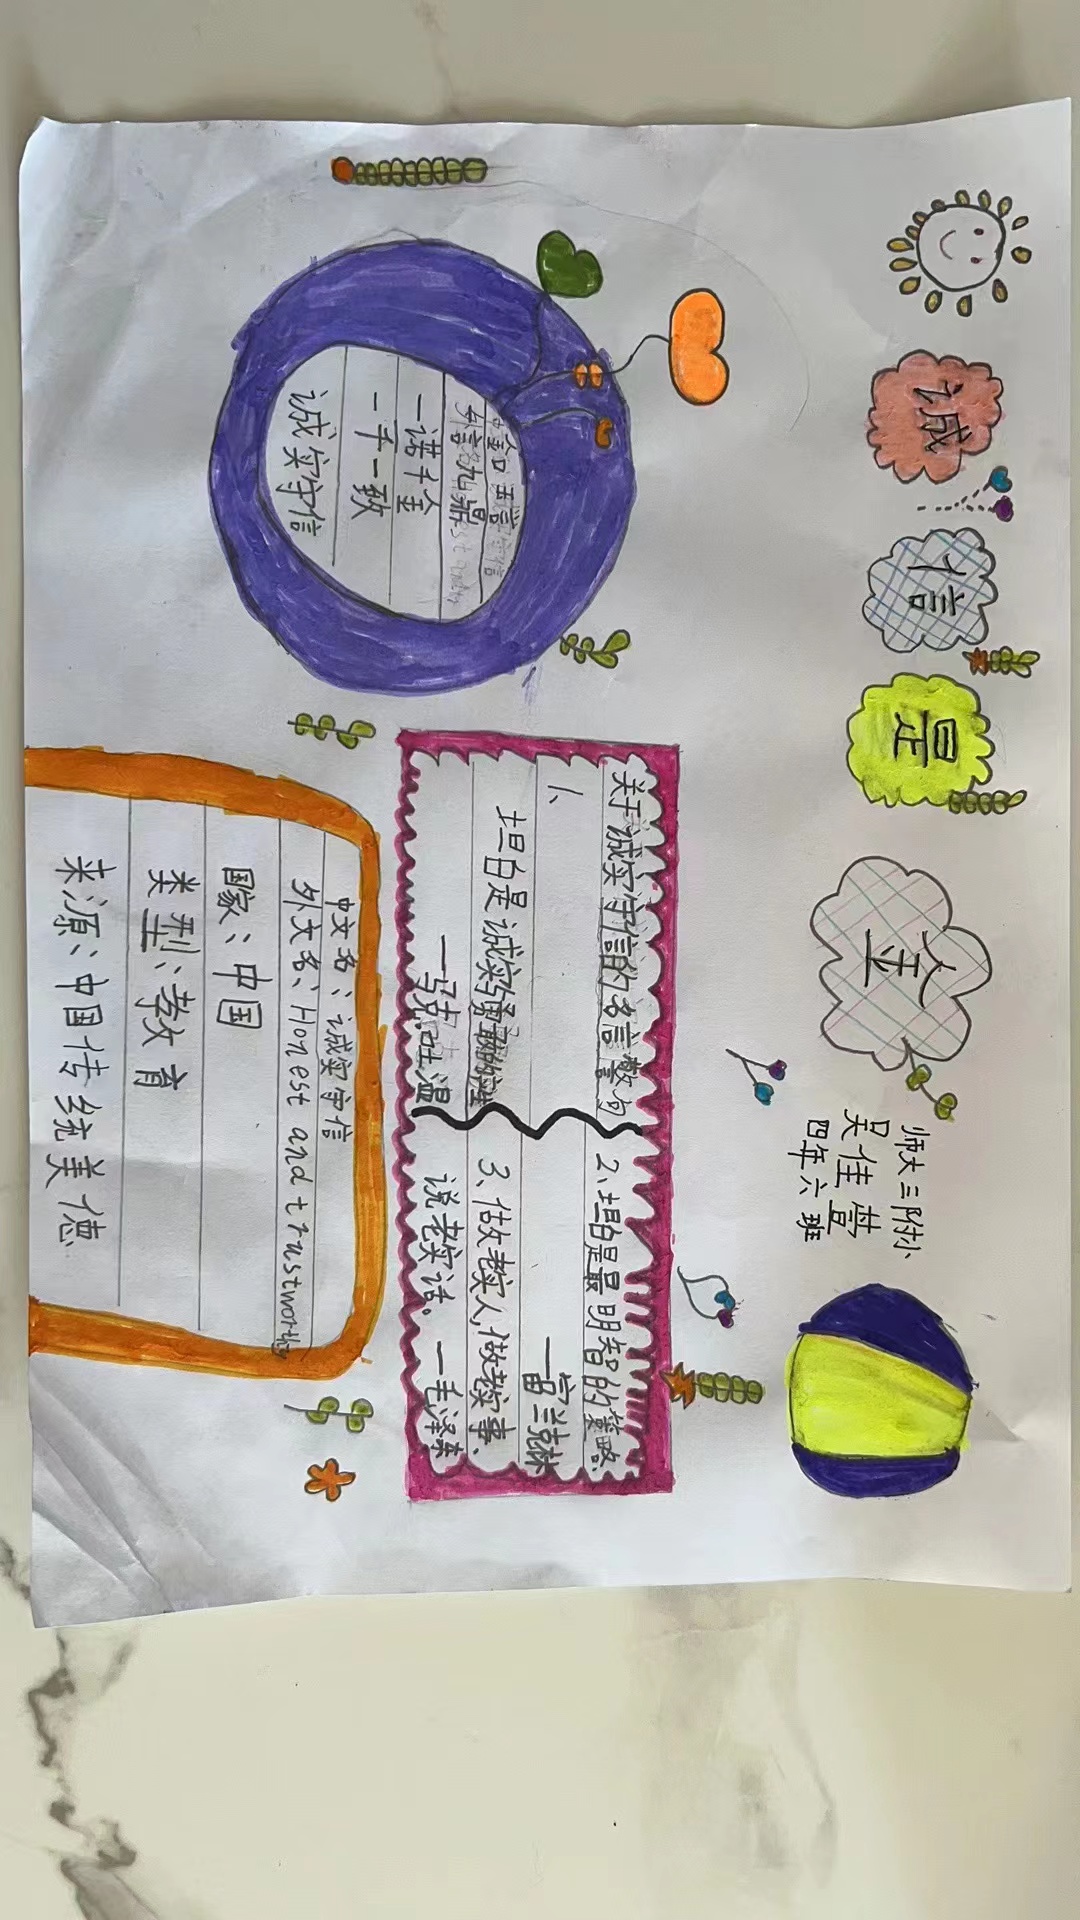 诚信是金
师大三附小
吴佳萱
四年六班
一言九鼎
一诺千金
一千一致
诚实守信
关于诚实守信的名言警句
1、
坦白是诚实勇敢的产生
——马克·吐温
2、坦白是最明智的策略
——富兰克林
3、做老实人,做老实事、
说老实话。——毛泽东
中文名:诚实守信
外文名:Honest and trustworthy
国家:中国
类型:教育
来源:中国传统美德